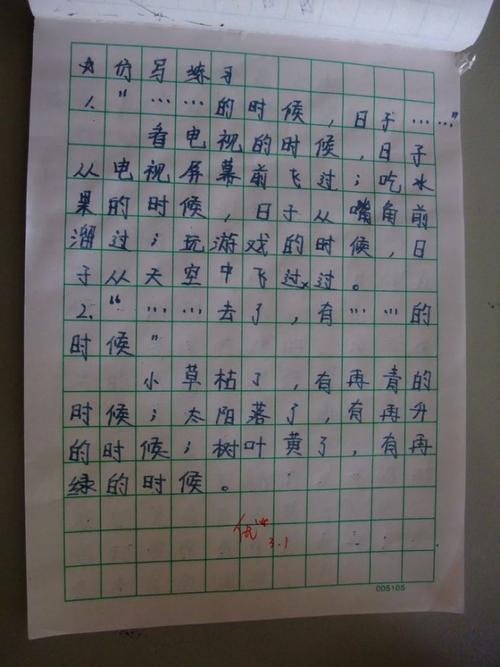 仿写练习
1."……的时候，日子……"
看电视的时候，日子
从电视屏幕前飞过；吃水
果的时候，日子从嘴角前
溜过；玩游戏的时候，日
子从天空中飞过过。
2."……去了，有……的
时候"
小草枯了，有再青的
时候；太阳落了，有再升
的时候；树叶黄了，有再
绿的时候。
优
3.1
005105